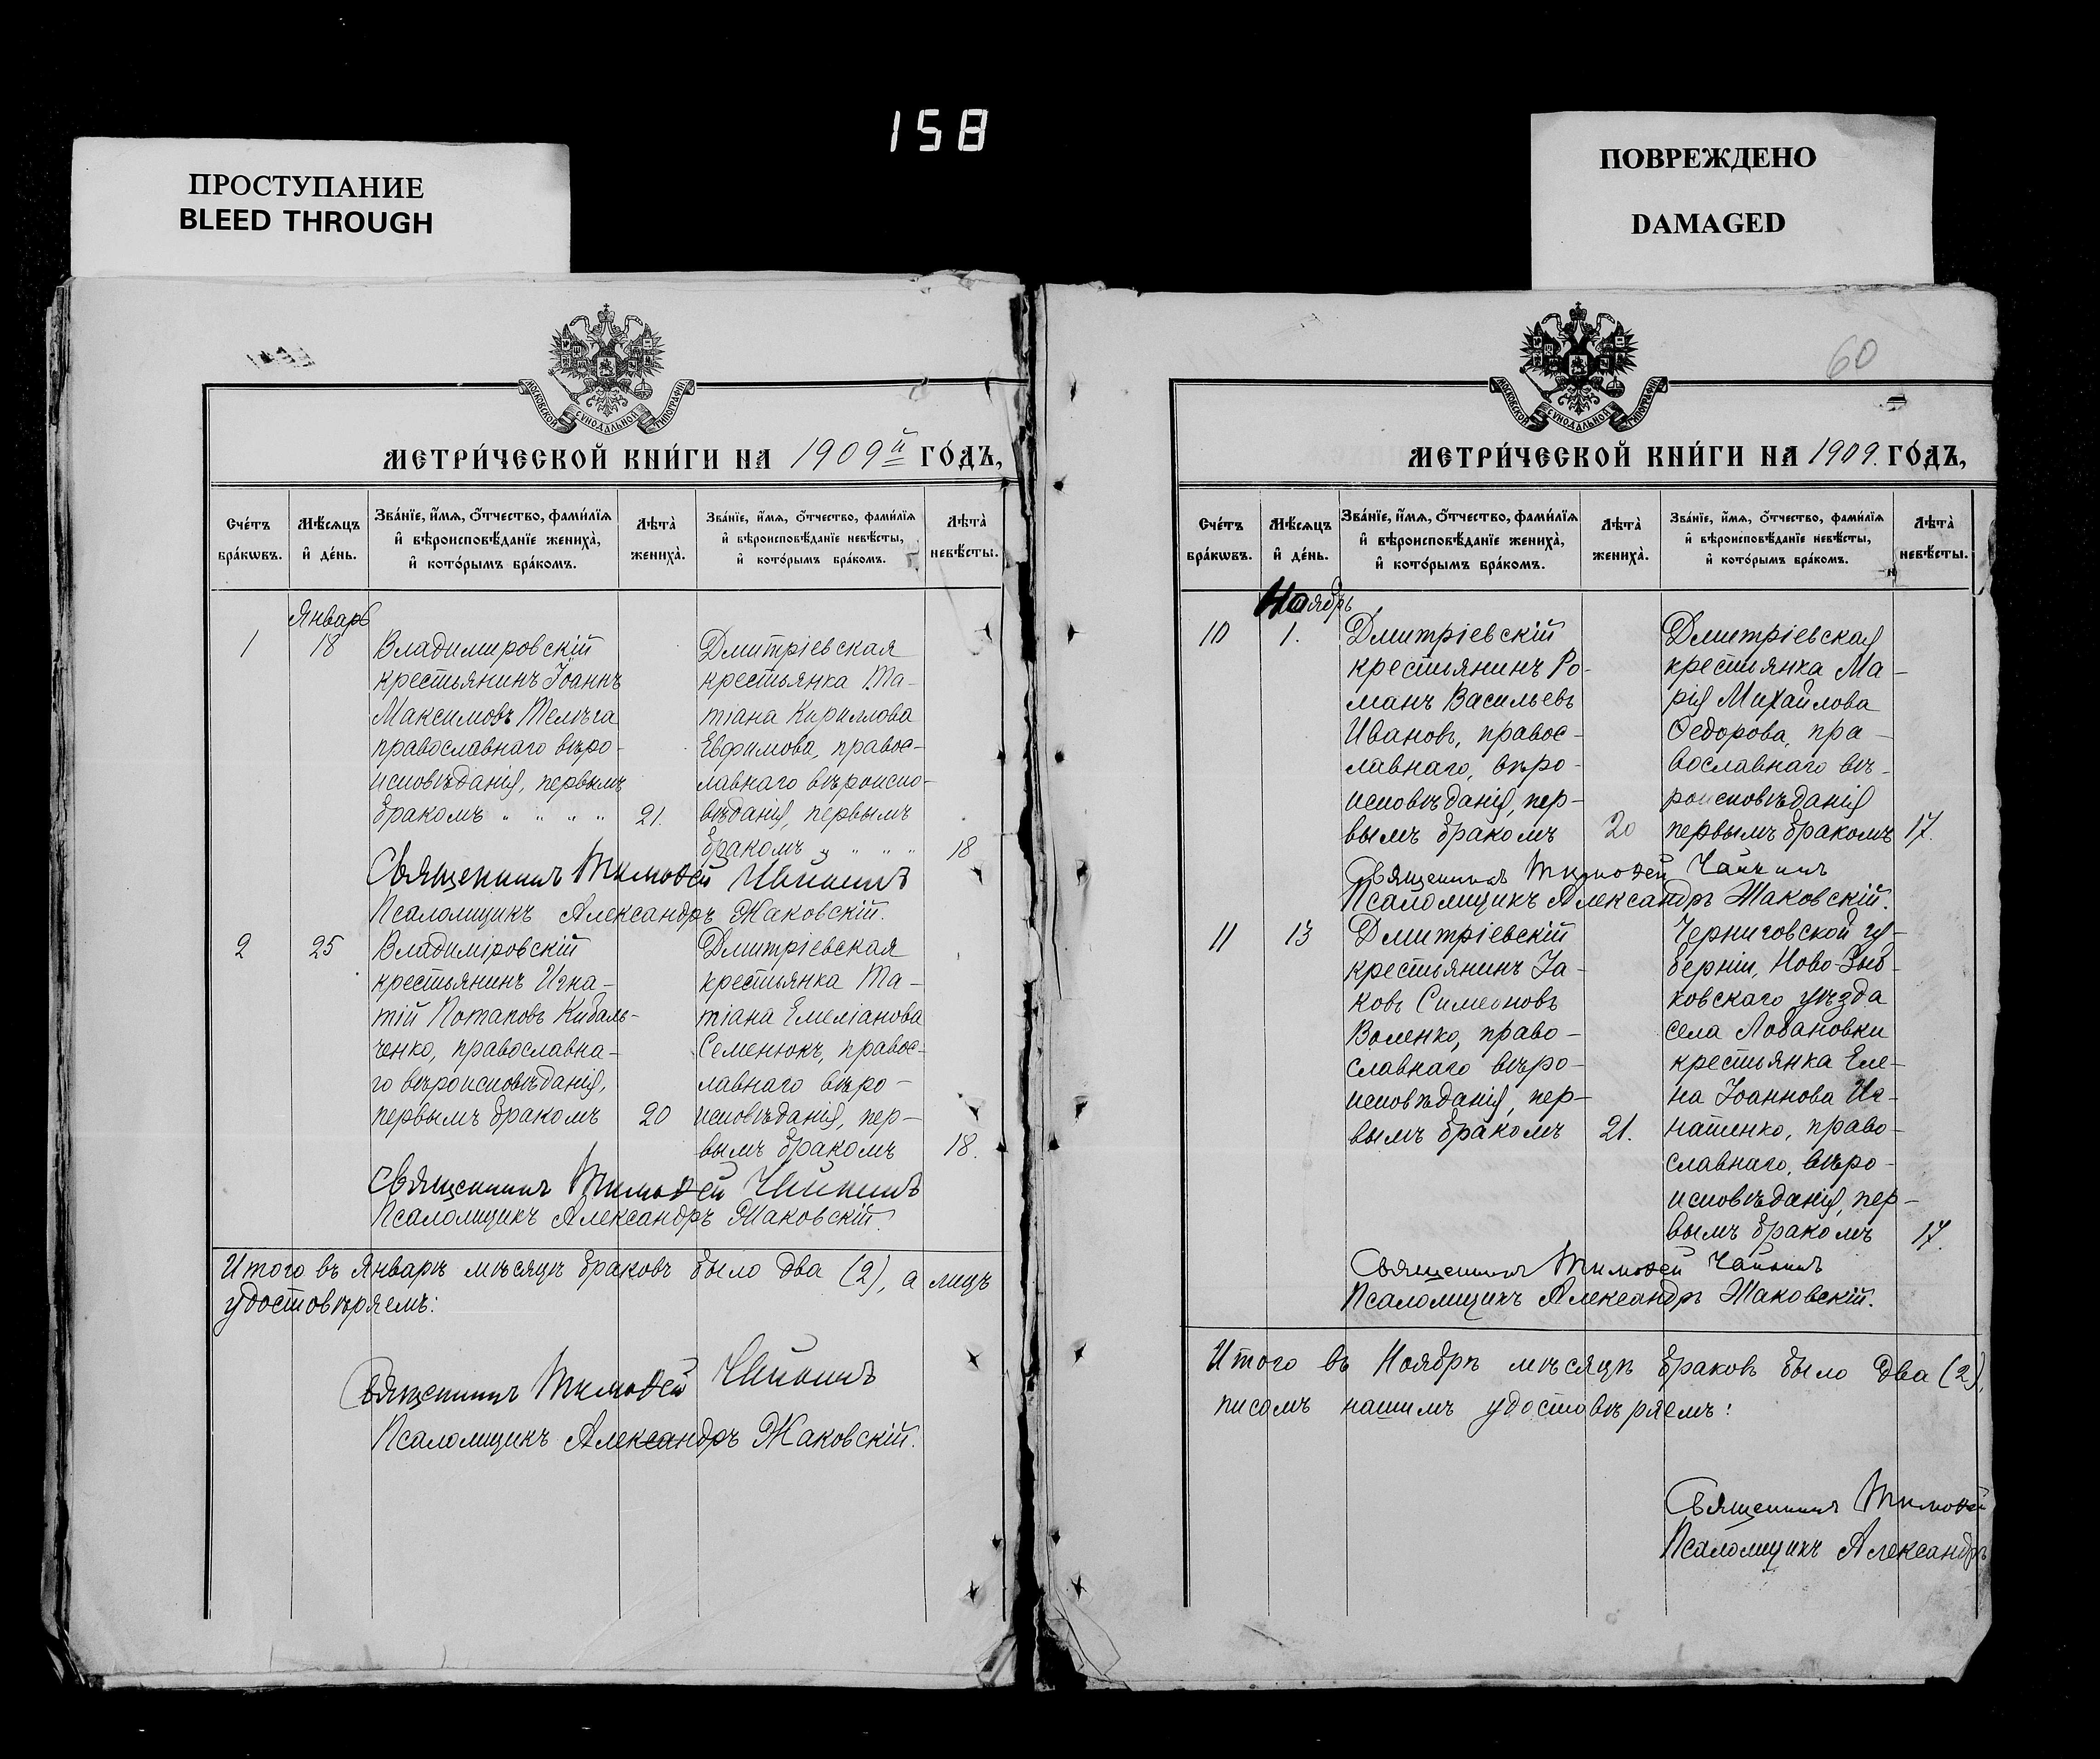 158
ПРОСТУПАНИЕ
BLEED THROUGH
ПОВРЕЖДЕНО
DAMAGED
МОСКОВСКОЙ СѴНОДАЛЬНОЙ ТИПОГРАФІИ
МЕТРИ́ЧЕСКОЙ КНИ́ГИ НА 1909й ГО́ДЪ,
Сче́тъ бра́кѡвъ.
Мѣ́сѧцъ и҆ де́нь.
Зва́нїе, и҆́мѧ, ѻ҆́тчество, фами́лїѧ
и҆ вѣроисповѣ́данїе жениха̀,
и҆ кото́рымъ бра́комъ.
Лѣта̀ жениха̀.
Зва́нїе, и҆́мѧ, ѻ҆́тчество, фами́лїѧ
и҆ вѣроисповѣ́данїе невѣ́сты,
и҆ кото́рымъ бра́комъ.
Лѣта̀ невѣ́сты.
Январь
1
18
Владимировскій
крестьянинъ Іоаннъ
Максимовъ Телѣга
православнаго вѣро-
исповѣданія, первымъ
бракомъ " " " "
21.
Дмитріевская
крестьянка Та-
тіана Кириллова
Евфимова, правос-
лавнаго вѣроиспо-
вѣданія, первымъ
бракомъ " " " "
18
Священникъ Тимофей Чайкинъ
Псаломщикъ Александръ Жаковскій.
2
25
Владиміровскій
крестьянинъ Игна-
тій Потаповъ Кибаль-
ченко, православна-
го вѣроисповѣданія,
первымъ бракомъ
20
Дмитріевская
крестьянка Та-
тіана Емеліанова
Семенюкъ, правос-
лавнаго вѣро-
исповѣданія, пер-
вымъ бракомъ
18.
Священникъ Тимофей Чайкинъ
Псаломщикъ Александръ Жаковскій.
Итого въ Январѣ мѣсяцѣ браковъ было два (2), а лицъ
удостовѣряемъ:
Священникъ Тимофей Чайкинъ
Псаломщикъ Александръ Жаковскій.
60
МОСКОВСКОЙ СѴНОДАЛЬНОЙ ТИПОГРАФІИ
МЕТРИ́ЧЕСКОЙ КНИ́ГИ НА 1909. ГО́ДЪ,
Сче́тъ бра́кѡвъ.
Мѣ́сѧцъ и҆ де́нь.
Зва́нїе, и҆́мѧ, ѻ҆́тчество, фами́лїѧ
и҆ вѣроисповѣ́данїе жениха̀,
и҆ кото́рымъ бра́комъ.
Лѣта̀ жениха̀.
Зва́нїе, и҆́мѧ, ѻ҆́тчество, фами́лїѧ
и҆ вѣроисповѣ́данїе невѣ́сты,
и҆ кото́рымъ бра́комъ.
Лѣта̀ невѣ́сты.
Ноябрь
10
1.
Дмитріевскій
крестьянинъ Ро-
манъ Васильевъ
Ивановъ, правос-
лавнаго, вѣро-
исповѣданія, пер-
вымъ бракомъ
20
Дмитріевская
крестьянка Ма-
рія Михайлова
Ѳедорова, пра-
вославнаго вѣ-
роисповѣданія
первымъ бракомъ
17.
Священникъ Тимофей Чайкинъ
Псаломщикъ Александръ Жаковскій.
11
13
Дмитріевскій
крестьянинъ Іа-
ковъ Симеоновъ
Воленко, право-
славнаго вѣро-
исповѣданія, пер-
вымъ бракомъ
21.
Черниговской гу-
берніи, Ново-Зыб-
ковскаго уѣзда
села Лобановки
крестьянка Еле-
на Іоаннова Иг-
натенко, право-
славнаго, вѣро-
исповѣданія, пер-
вымъ бракомъ
17.
Священникъ Тимофей Чайкинъ
Псаломщикъ Александръ Жаковскій.
Итого въ Ноябрѣ мѣсяцѣ браковъ было два (2),
писомъ нашимъ удостовѣряемъ:
Священникъ Тимофей
Псаломщикъ Александръ